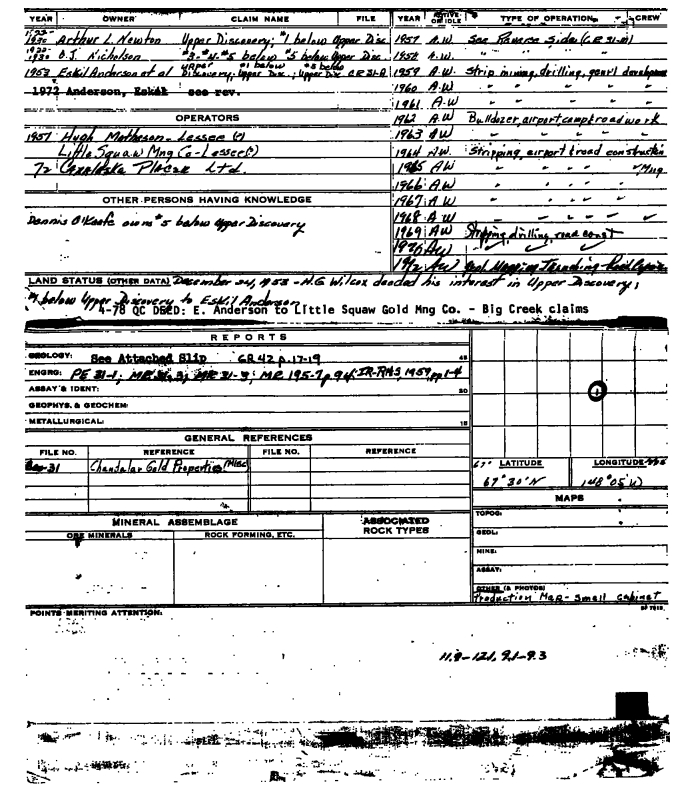 YEAR OWNER CLAIM NAME FILE YEAR ACTIVE OR IDLE TYPE OF OPERATION CREW
1930 Arthur L. Newton Upper Discovery; #1 below Upper Disc 1957 A.W. See Reverse Side (CR 31-A)
1930 O.J. Nicholson #3-#4-#5 below #5 below Upper Disc 1958 A.W. " " " "
1953 Eskil Anderson et al Discovery; Upper Disc., Upper Disc CR 31-A 1959 A.W. Strip mining, drilling, genrl development
1972 Anderson, Eskil see rev. 1960 A.W " " "
1961 A.W
OPERATORS 1962 A.W Bulldozer, airport, camp & road work
1957 Hugh Matheson - Lessee (?) 1963 A.W " " " "
Little Squaw Mng Co - Lessee(?) 1964 A.W. Stripping, airport & road construction
72 Canalaska Placer Ltd. 1965 A.W " " " Mng
1966 A.W " " "
OTHER PERSONS HAVING KNOWLEDGE 1967 A.W " " "
Dennis O'Keefe owns #5 below Upper Discovery 1968 A.W " " "
1969 A.W Stripping, drilling, road const
1970 A.W
1972 A.W Geol. Mapping, Trenching, Road
LAND STATUS (OTHER DATA) December 24, 1953 - N.G Wilcox deeded his interest in Upper Discovery;
#1 below Upper Discovery to Eskil Anderson
4-78 QC DEED: E. Anderson to Little Squaw Gold Mng Co. - Big Creek claims
REPORTS
GEOLOGY: See Attached Slip GR 42 p.17-19
ENGRG: PE 31-1; MR 31-3; MR 195-7 p 94; IR-RHS, 1959, pp 1-4
ASSAY & IDENT:
GEOPHYS. & GEOCHEM:
METALLURGICAL:
GENERAL REFERENCES
FILE NO. REFERENCE FILE NO. REFERENCE
31 Chandalar Gold Properties (Misc)
67° LATITUDE LONGITUDE
67° 30' N 148° 05' W
MAPS
TOPOG:
GEOL:
MINE:
ASSAY:
OTHER (& PHOTOS)
Production Map - Small Cabinet
MINERAL ASSEMBLAGE ASSOCIATED ROCK TYPES
ORE MINERALS ROCK FORMING, ETC.
POINTS MERITING ATTENTION:
11.9-12.1, 9.1-9.3